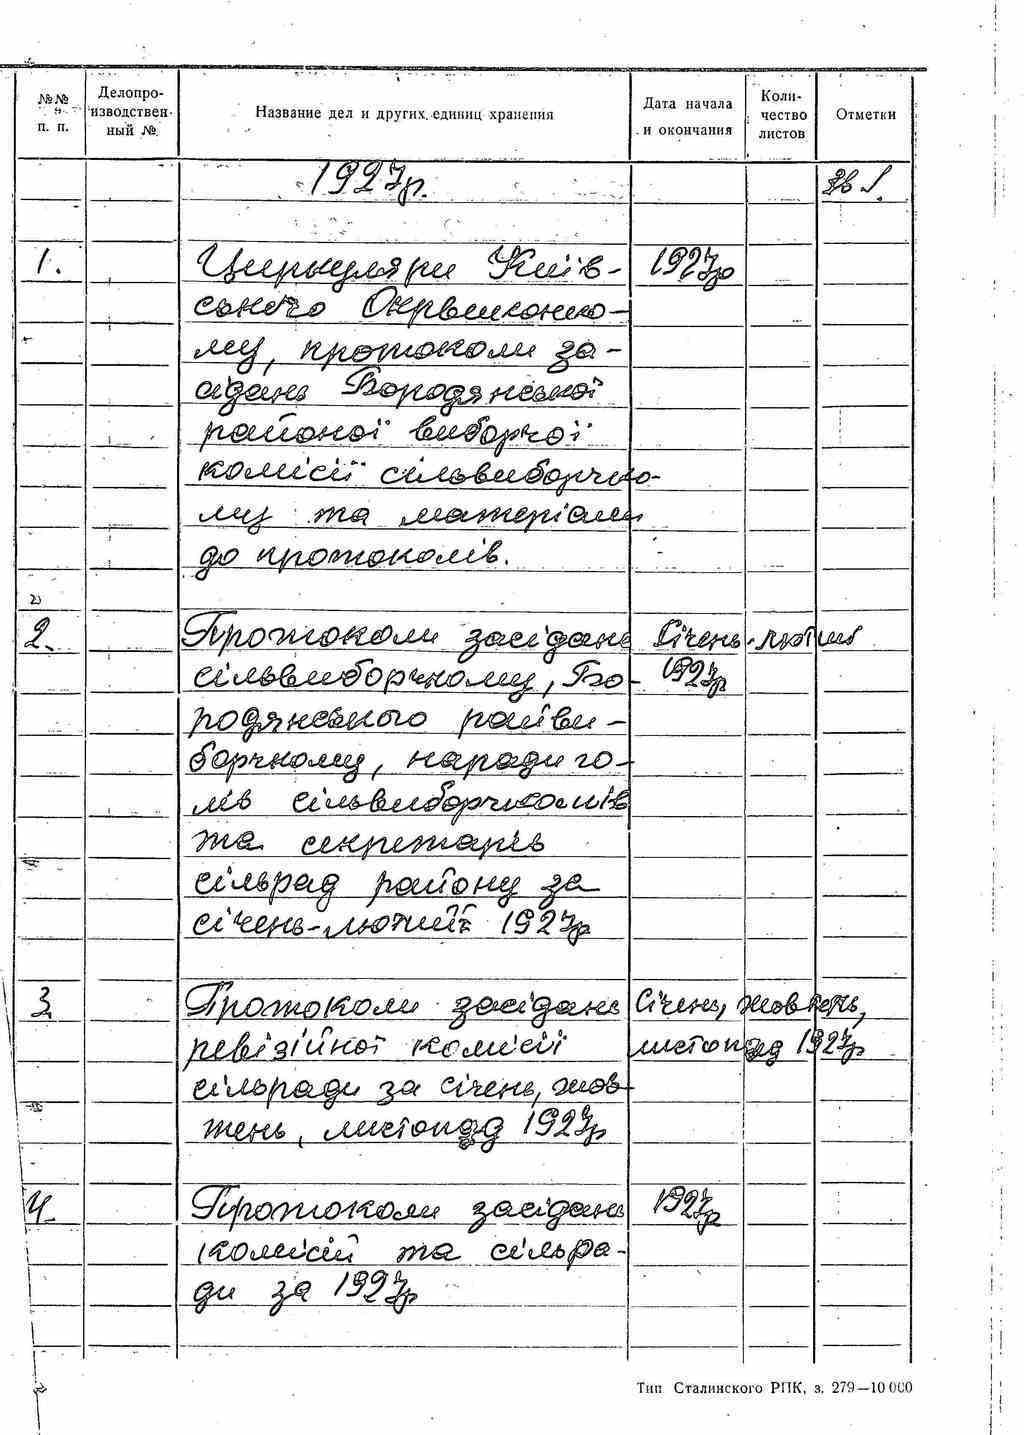 №№ п. п.
Делопро-изводствен-ный №.
Название дел и других единиц хранения
Дата начала и окончания
Коли-чество листов
Отметки
1927р.
1. Циркуляри Київ- 1927р
ського Окрвиконко-
му, протоколи за-
сідань Бородянської
районої виборчої
комісії сільвиборчко-
му та матеріали
до протоколів.
2. Протоколи засідань Січень-лютий
сільвиборчкому, Бо- 1927р
родянського райви-
борчкому, наради го-
лів сільвиборчкомів
та секретарів
сільрад району за
січень-лютий 1927р
3 Протоколи засідань Січень, жовтень,
ревізійної комісії листопад 1927р
сільради за січень, жов-
тень, листопад 1927р
4. Протоколи засідань 1927р
комісій та сільра-
ди за 1927р
Тип Сталинского РПК, з. 279—10 000